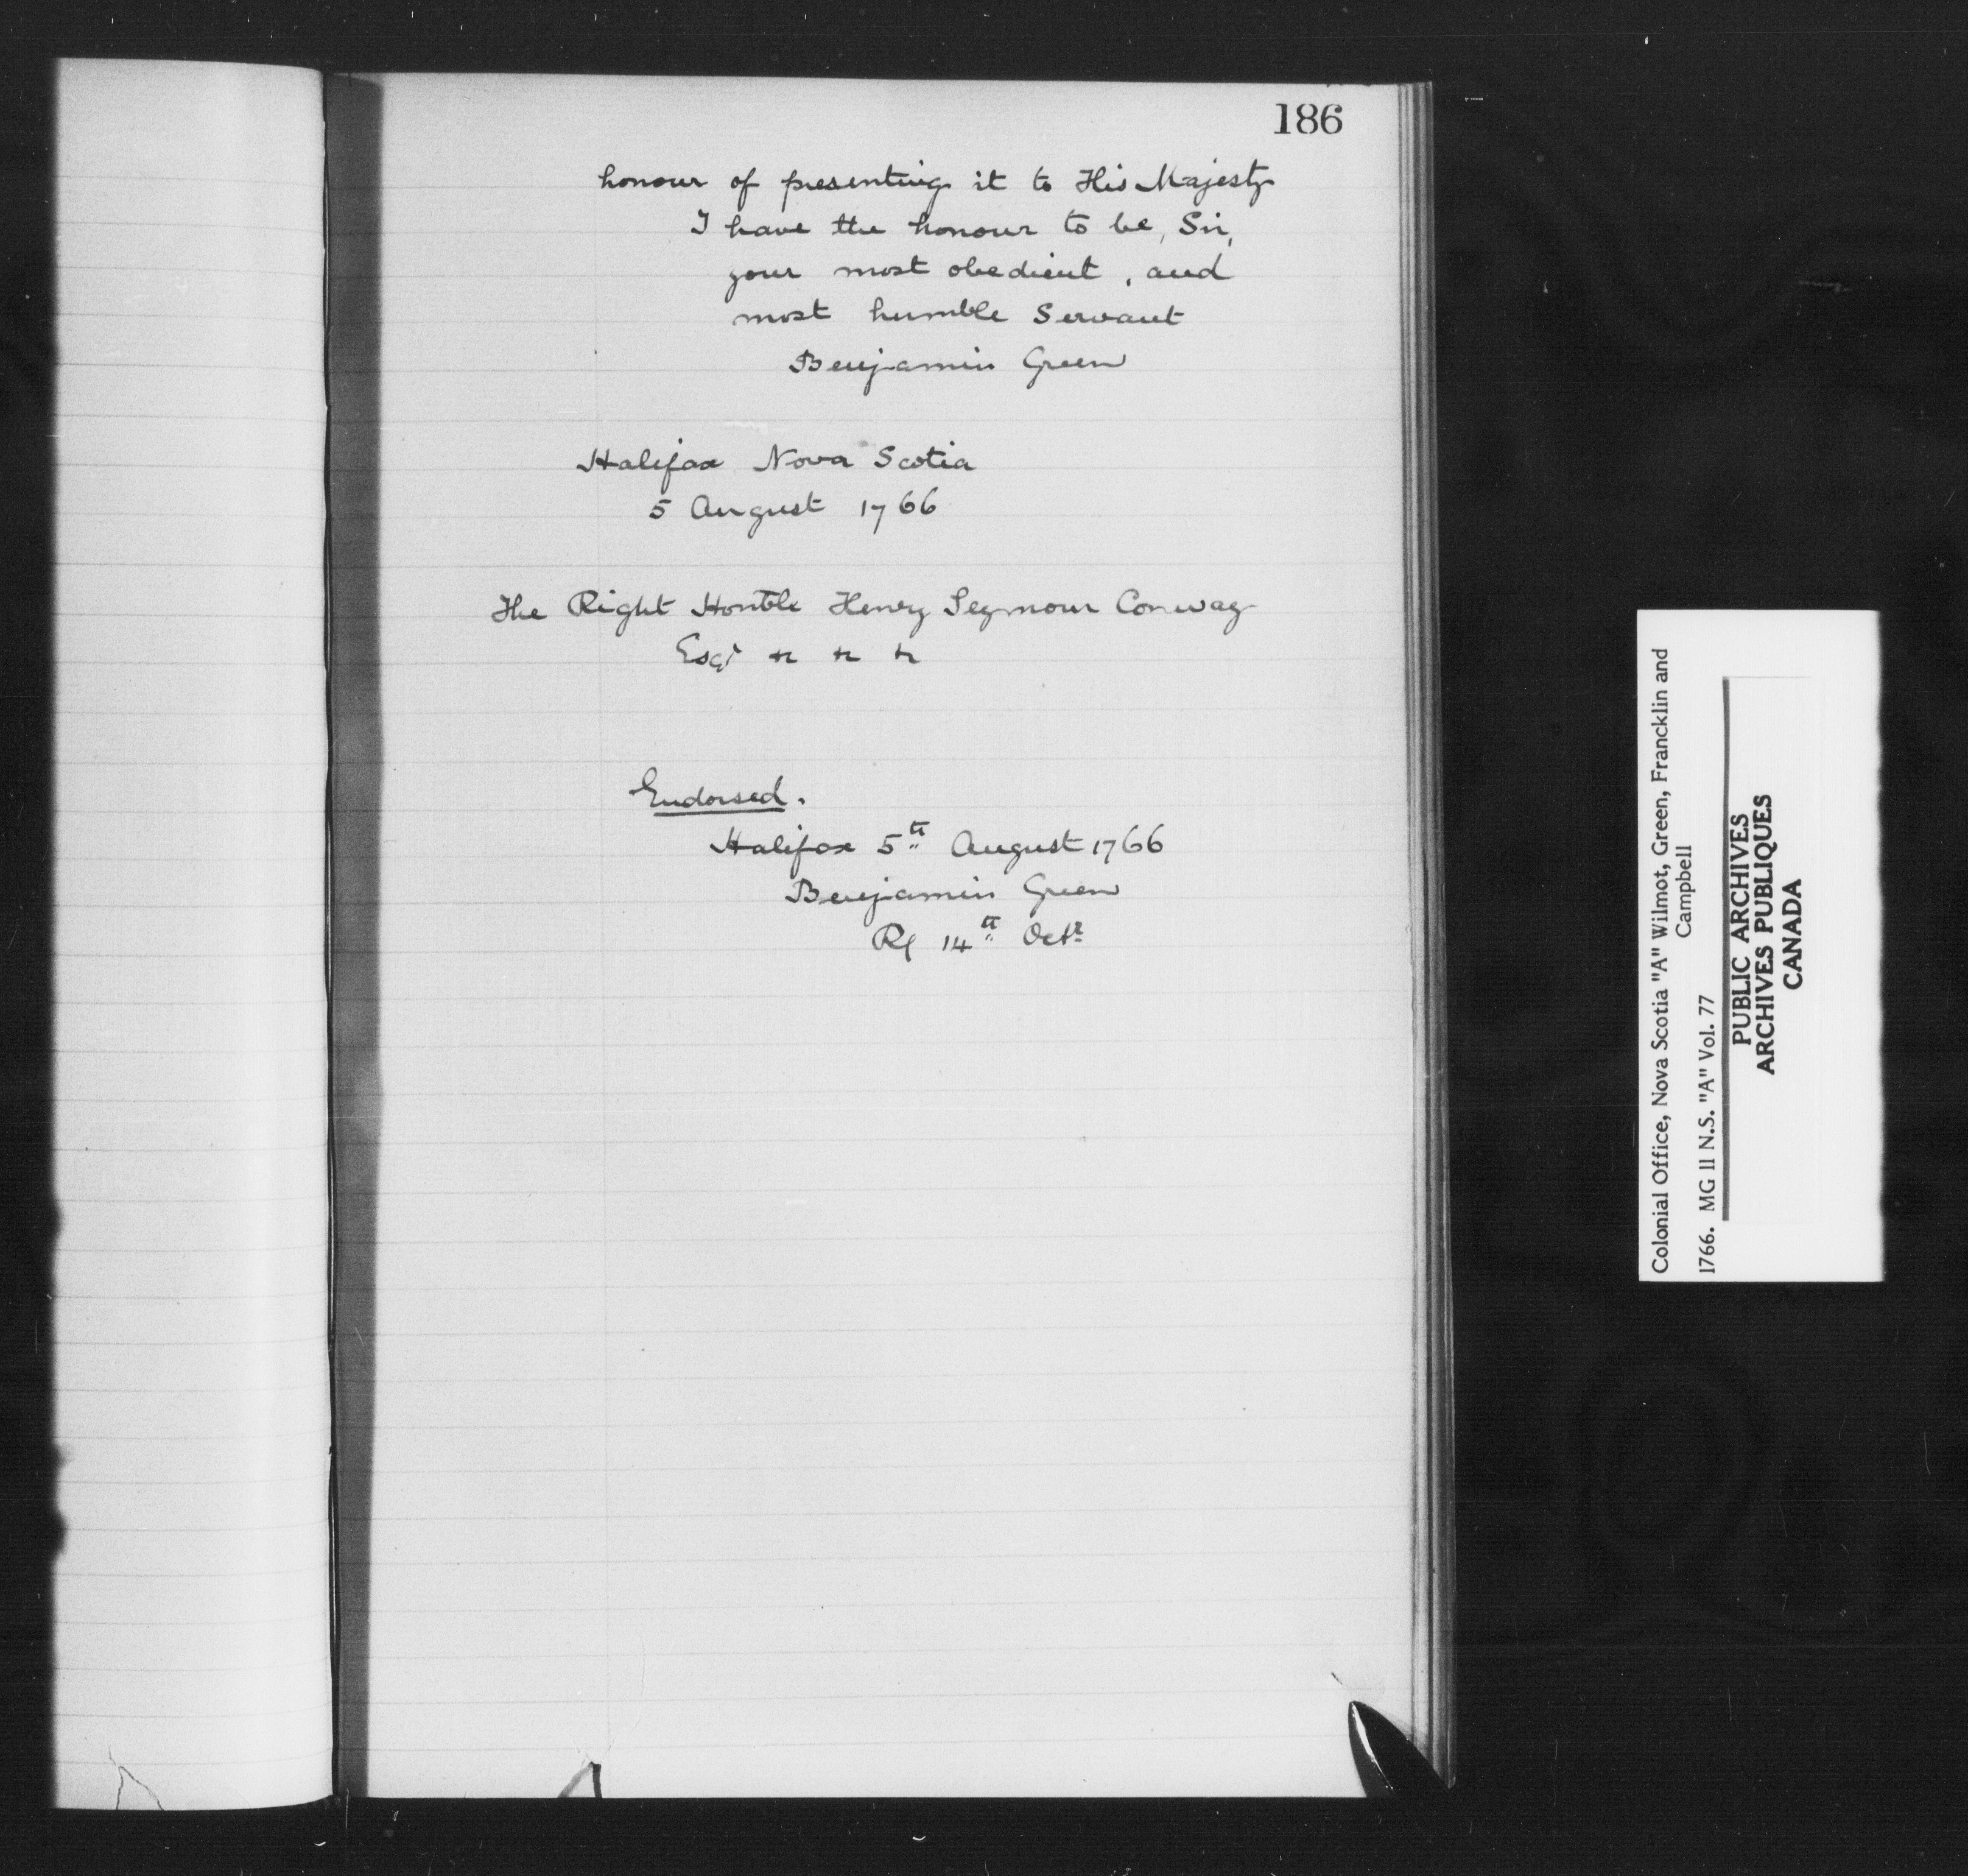 186
honour of presenting it to His Majesty
I have the honour to be, Sir,
your most obedient, and
most humble Servant
Benjamin Green
Halifax Nova Scotia
5 August 1766
The Right Honble Henry Seymour Conway
Esqr &c &c &c
Endorsed.
Halifax 5th August 1766
Benjamin Green
R 14th Octr
Colonial Office, Nova Scotia "A" Wilmot, Green, Francklin and
Campbell
1766. MG 11 N.S. "A" Vol. 77
PUBLIC ARCHIVES
ARCHIVES PUBLIQUES
CANADA